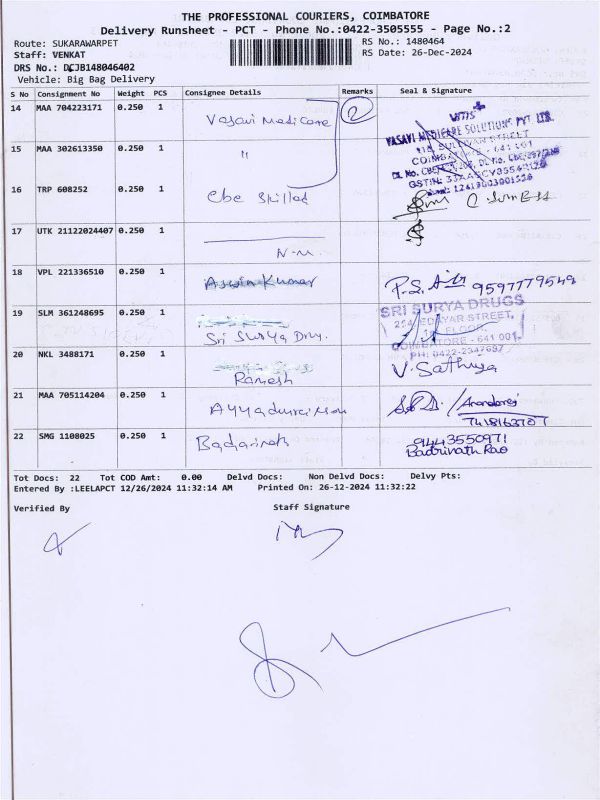 THE PROFESSIONAL COURIERS, COIMBATORE
Delivery Runsheet - PCT - Phone No.:0422-3505555 - Page No.:2
Route: SUKARAWARPET
RS No.: 1480464
Staff: VENKAT
RS Date: 26-Dec-2024
DRS No.: DCJB148046402
Vehicle: Big Bag Delivery
S No Consignment No Weight PCS Consignee Details Remarks Seal & Signature
14 MAA 704223171 0.250 1 Vasavi Medicare 2
VITIS
VASAVI MEDICARE SOLUTIONS PVT. LTD.
15 MAA 302613350 0.250 1 "
SULLIVAN STREET
COIMBATORE - 641 001
16 TRP 608252 0.250 1 Cbe Skilled
17 UTK 21122024407 0.250 1
N-M
18 VPL 221336510 0.250 1 Aswin Kumar 9597779549
19 SLM 361248695 0.250 1 Sri Surya Drug.
SRI SURYA DRUGS
EDAYAR STREET,
COIMBATORE - 641 001.
PH: 0422-2347697
20 NKL 3488171 0.250 1 Ramesh V. Sathya
21 MAA 705114204 0.250 1 Ayyadurai
7418163707
22 SMG 1108025 0.250 1 Badrinath 9443550971
Badrinath Rao
Tot Docs: 22 Tot COD Amt: 0.00 Delvd Docs: Non Delvd Docs: Delvy Pts:
Entered By :LEELAPCT 12/26/2024 11:32:14 AM Printed On: 26-12-2024 11:32:22
Verified By Staff Signature